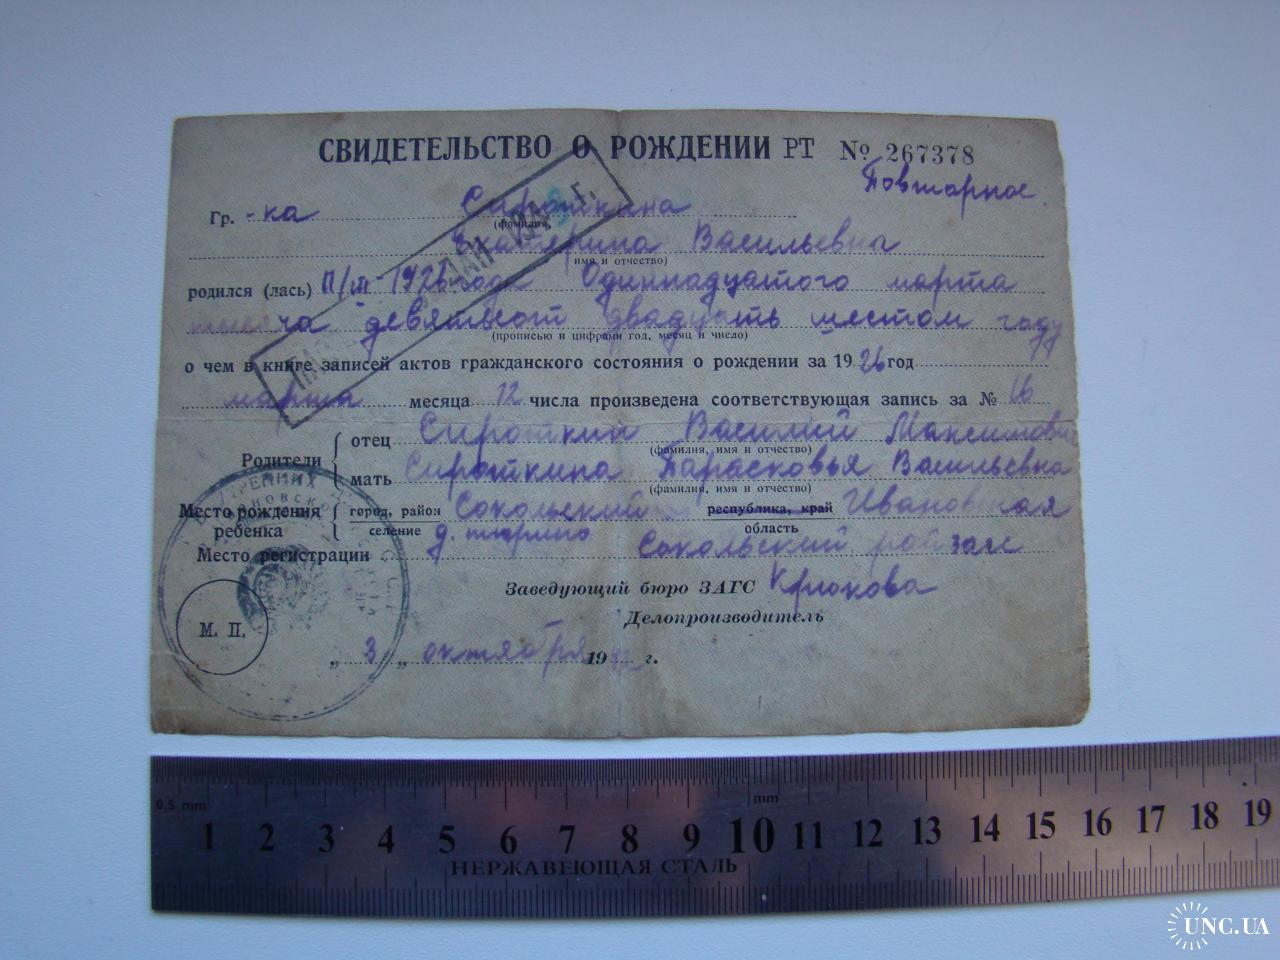 СВИДЕТЕЛЬСТВО О РОЖДЕНИИ РТ № 267378
Повторное
Гр.-ка Сироткина
(фамилия,
Екатерина Васильевна
имя и отчество)
родился (лась) 11/III-1926 года Одиннадцатого марта
тысяча девятьсот двадцать шестом году
(прописью и цифрами год, месяц и число)
о чем в книге записей актов гражданского состояния о рождении за 1926 год
марта месяца 12 числа произведена соответствующая запись за № 16
Родители
отец Сироткин Василий Максимович
(фамилия, имя и отчество)
мать Сироткина Парасковья Васильевна
(фамилия, имя и отчество)
Место рождения ребенка
город, район Сокольский республика, край Ивановская
селение д. область
Место регистрации Сокольский райзагс
Заведующий бюро ЗАГС Крюкова
Делопроизводитель
М. П.
„ 3 „ октября 19 г.
0,5 mm
mm
1 2 3 4 5 6 7 8 9 10 11 12 13 14 15 16 17 18 19
НЕРЖАВЕЮЩАЯ СТАЛЬ
UNC.UA